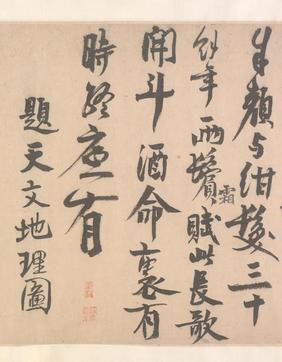 朱顏与紺髮三十
餘年兩鬢霜賦此長歌
開斗酒命裏有
時終應有
題天文地理圖